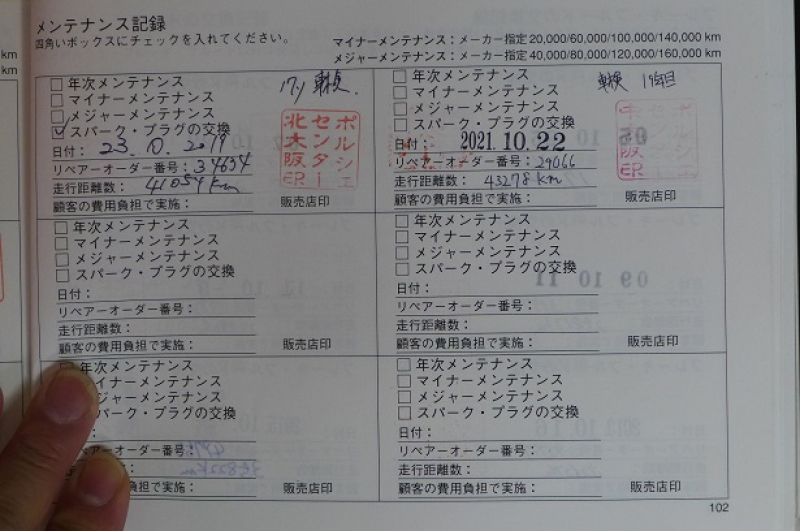 メンテナンス記録
四角いボックスにチェックを入れてください。
マイナーメンテナンス：メーカー指定 20,000/60,000/100,000/140,000 km
メジャーメンテナンス：メーカー指定 40,000/80,000/120,000/160,000 km
km
km
年次メンテナンス
マイナーメンテナンス
メジャーメンテナンス
スパーク・プラグの交換
日付： 23.10.2019
リペアーオーダー番号： 34634
走行距離数： 41054 km
顧客の費用負担で実施：
ポルシェ
センター
北大阪
販売店印
年次メンテナンス 車検
マイナーメンテナンス
メジャーメンテナンス
スパーク・プラグの交換
日付： 2021.10.22
リペアーオーダー番号： 29066
走行距離数： 43278 km
顧客の費用負担で実施：
販売店印
年次メンテナンス
マイナーメンテナンス
メジャーメンテナンス
スパーク・プラグの交換
日付：
リペアーオーダー番号：
走行距離数：
顧客の費用負担で実施：
販売店印
年次メンテナンス
マイナーメンテナンス
メジャーメンテナンス
スパーク・プラグの交換
日付：
リペアーオーダー番号：
走行距離数：
顧客の費用負担で実施：
販売店印
年次メンテナンス
マイナーメンテナンス
メジャーメンテナンス
パーク・プラグの交換
ペアーオーダー番号：
数：
負担で実施：
販売店印
年次メンテナンス
マイナーメンテナンス
メジャーメンテナンス
スパーク・プラグの交換
日付：
リペアーオーダー番号：
走行距離数：
顧客の費用負担で実施：
販売店印
102